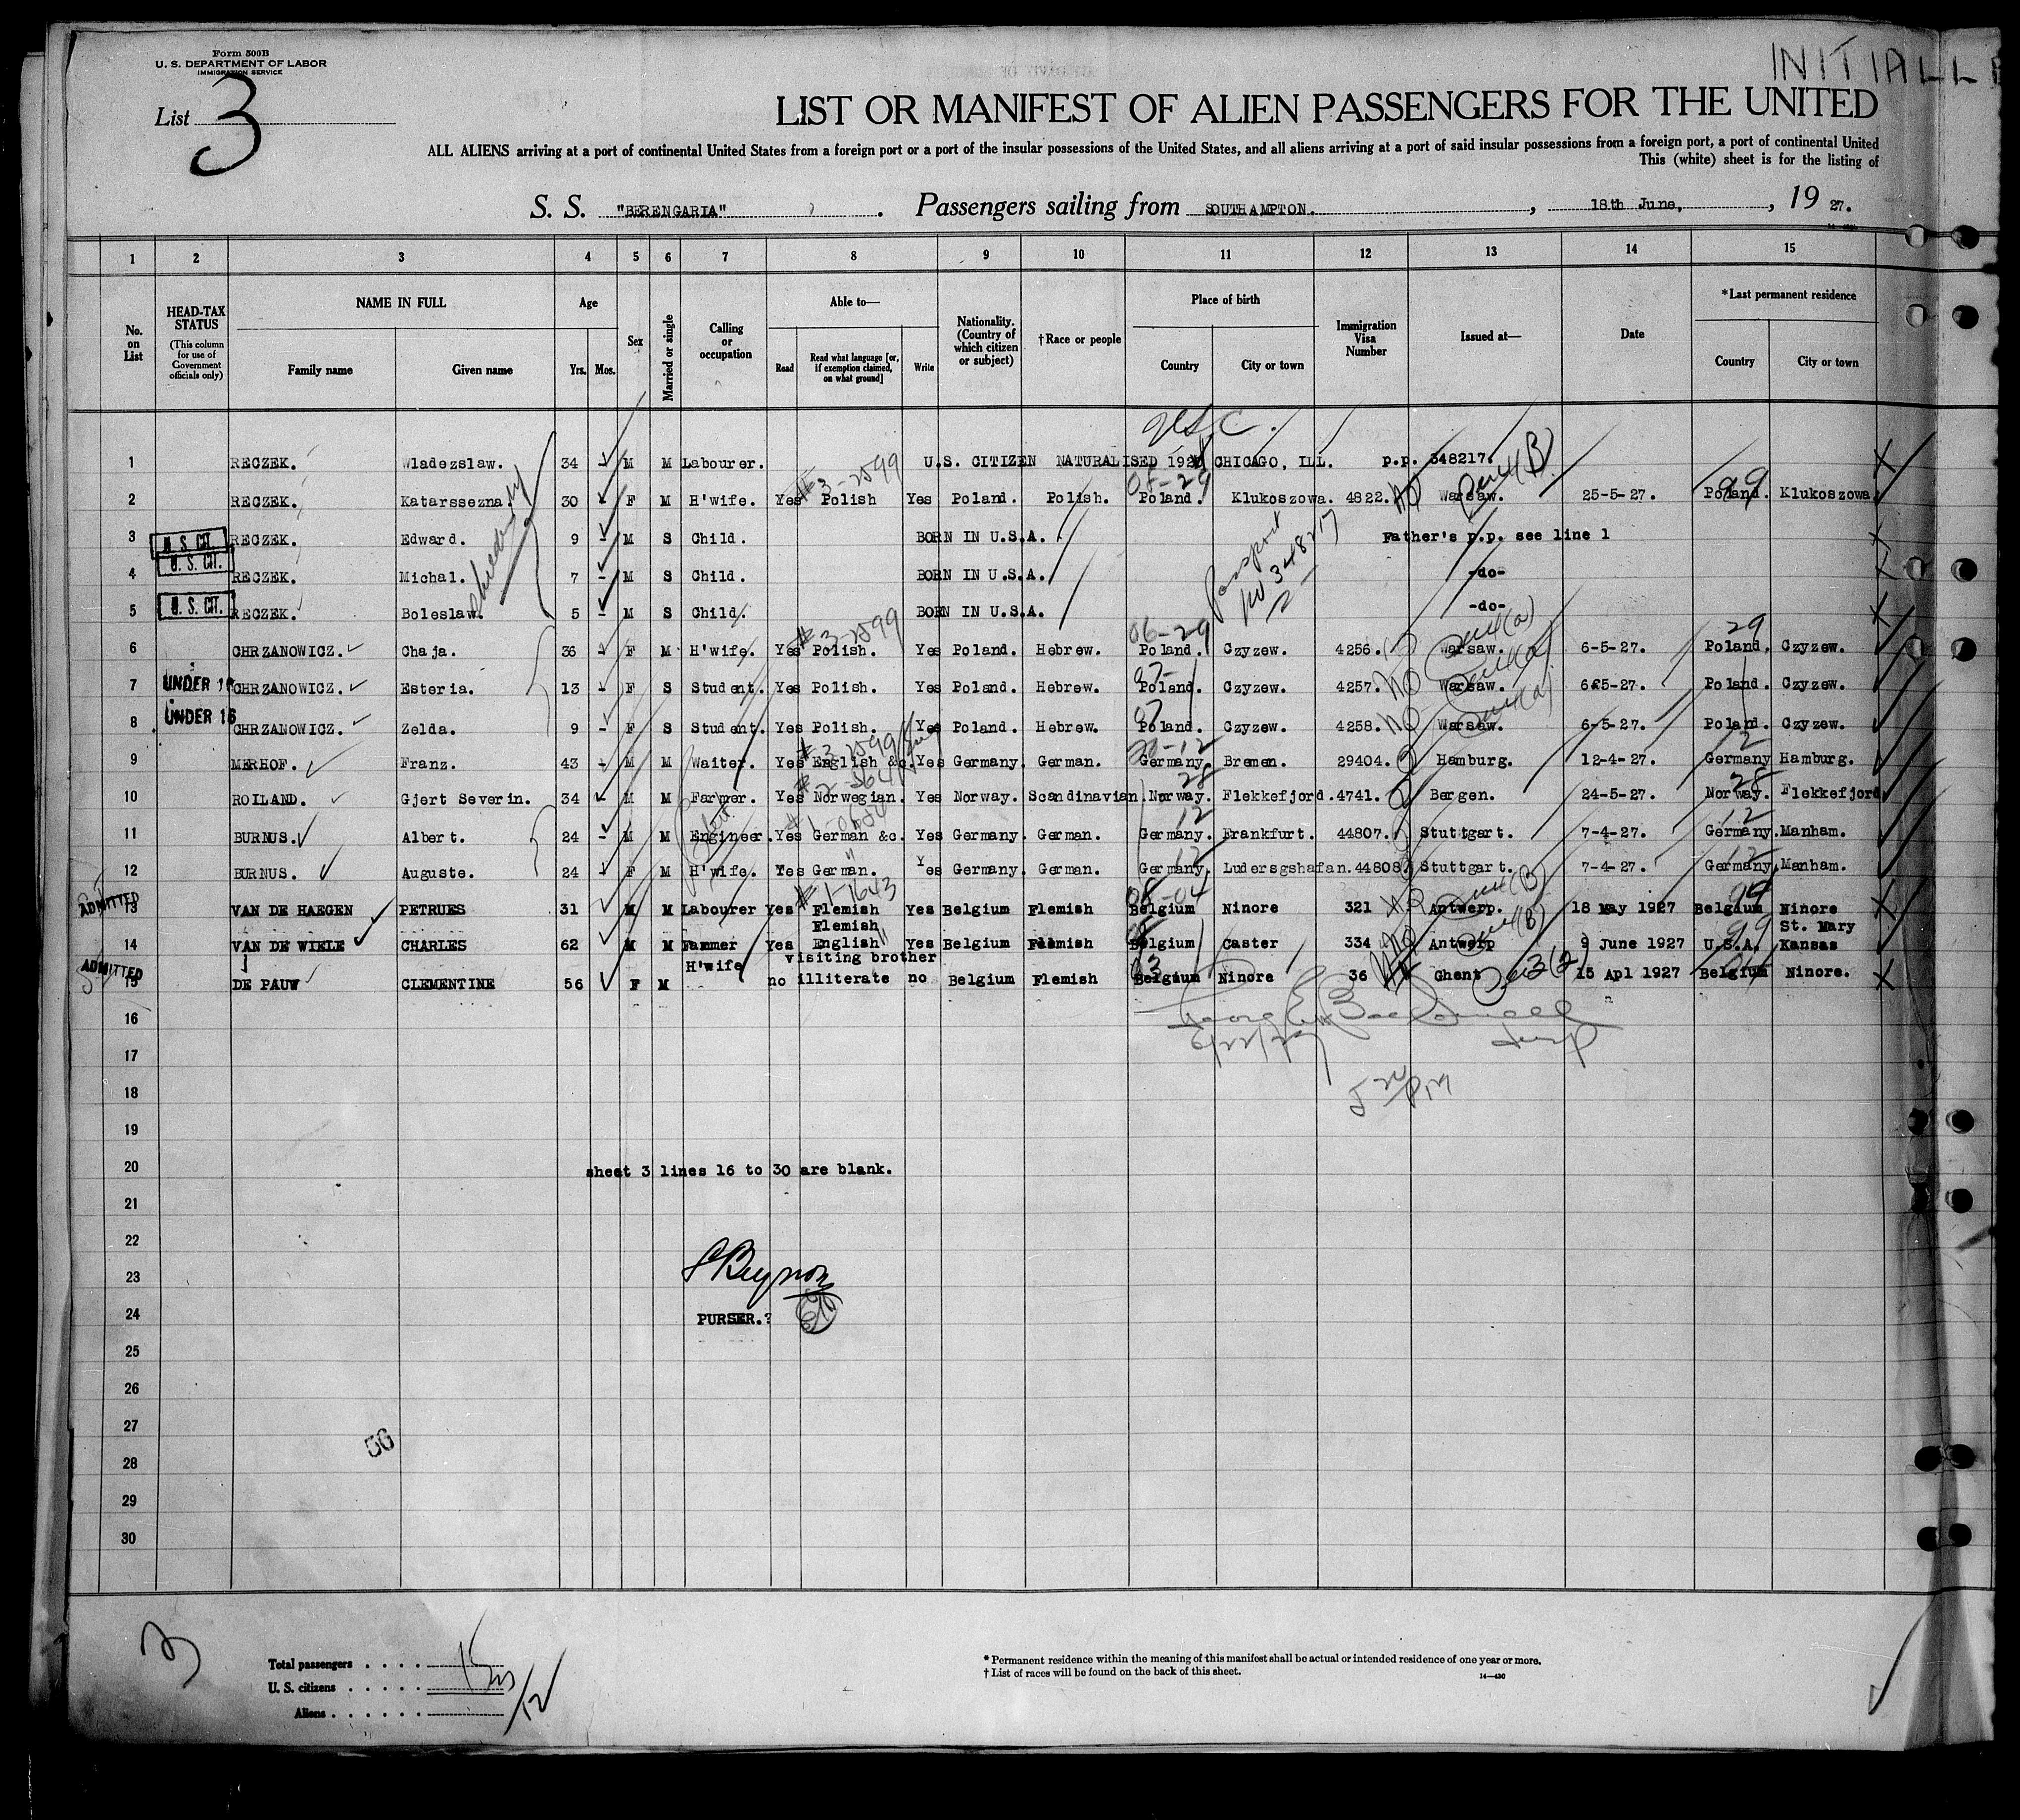 Form 500B
U. S. DEPARTMENT OF LABOR
IMMIGRATION SERVICE
INITIALL
List 3
LIST OR MANIFEST OF ALIEN PASSENGERS FOR THE UNITED
ALL ALIENS arriving at a port of continental United States from a foreign port or a port of the insular possessions of the United States, and all aliens arriving at a port of said insular possessions from a foreign port, a port of continental United
This (white) sheet is for the listing of
S. S. "BERENGARIA" . Passengers sailing from SOUTHAMPTON. , 18th June, , 19 27.
1 2 3 4 5 6 7 8 9 10 11 12 13 14 15
No. on List
HEAD-TAX STATUS
(This column for use of Government officials only)
NAME IN FULL
Family name Given name
Age
Yrs. Mos.
Sex
Married or single
Calling or occupation
Able to—
Read Read what language [or, if exemption claimed, on what ground] Write
Nationality. (Country of which citizen or subject)
†Race or people
Place of birth
Country City or town
Immigration Visa Number
Issued at—
Date
*Last permanent residence
Country City or town
USC.
1 RECZEK. Wladezslaw. 34 - M M Labourer. U.S. CITIZEN NATURALISED 192 CHICAGO, ILL. p.p. 348217.
#3-2599 08-29 99
2 RECZEK. Katarssezna. 30 - F M H'wife. Yes Polish Yes Poland. Polish. Poland. Klukoszowa. 4822. NQ Warsaw. 25-5-27. Poland. Klukoszowa
3 U. S. CIT. RECZEK. Edward. 9 - M S Child. BORN IN U.S.A. Father's p.p. see line 1
4 U. S. CIT. RECZEK. Michal. 7 - M S Child. BORN IN U.S.A. -do-
5 U. S. CIT. RECZEK. Boleslaw. 5 - M S Child. BORN IN U.S.A. -do-
Passport
No 348217
#3-2599 06-29 29
6 CHRZANOWICZ. Chaja. 36 - F M H'wife. Yes Polish. Yes Poland. Hebrew. Poland. Czyzew. 4256. Warsaw. 6-5-27. Poland. Czyzew.
7 UNDER 16 CHRZANOWICZ. Esteria. 13 - F S Student. Yes Polish. Yes Poland. Hebrew. Poland. Czyzew. 4257. NQ Warsaw. 6-5-27. Poland. Czyzew.
8 UNDER 16 CHRZANOWICZ. Zelda. 9 - F S Student. Yes Polish. Yes Poland. Hebrew. Poland. Czyzew. 4258. NQ Warsaw. 6-5-27. Poland. Czyzew.
#3-2599 12
9 MERHOF. Franz. 43 - M M Waiter. Yes English &c. Yes Germany. German. Germany. Bremen. 29404. Hamburg. 12-4-27. Germany Hamburg.
28 28
10 ROILAND. Gjert Severin. 34 - M M Farmer. Yes Norwegian. Yes Norway. Scandinavian. Norway. Flekkefjord. 4741. Bergen. 24-5-27. Norway. Flekkefjord.
12 12
11 BURNUS. Albert. 24 - M M Engineer. Yes German &c. Yes Germany. German. Germany. Frankfurt. 44807. Stuttgart. 7-4-27. Germany. Manham.
12 12
12 BURNUS. Auguste. 24 - F M H'wife. Yes German. Yes Germany. German. Germany. Ludersgshafan. 44808. Stuttgart. 7-4-27. Germany. Manham.
ADMITTED #1-1643 08-04 99
13 VAN DE HAEGEN PETRUES 31 M M Labourer Yes Flemish Yes Belgium Flemish Belgium Ninore 321 NQ Antwerp. 18 May 1927 Belgium Ninore
Flemish St. Mary
14 VAN DE WIELE CHARLES 62 M M Fammer Yes English Yes Belgium Flemish Belgium Caster 334 NQ Antwerp 9 June 1927 U.S.A. Kansas
ADMITTED H'wife visiting brother
15 DE PAUW CLEMENTINE 56 F M no illiterate no Belgium Flemish Belgium Ninore 36 Ghent 15 Apl 1927 Belgium Ninore.
16
17
18
19
20 sheet 3 lines 16 to 30 are blank.
21
22
23
24 PURSER.
25
26
27
56
28
29
30
3
Total passengers . . . . 15
U. S. citizens . . . . .
Aliens . . . . . . 12
* Permanent residence within the meaning of this manifest shall be actual or intended residence of one year or more.
† List of races will be found on the back of this sheet.
14—430